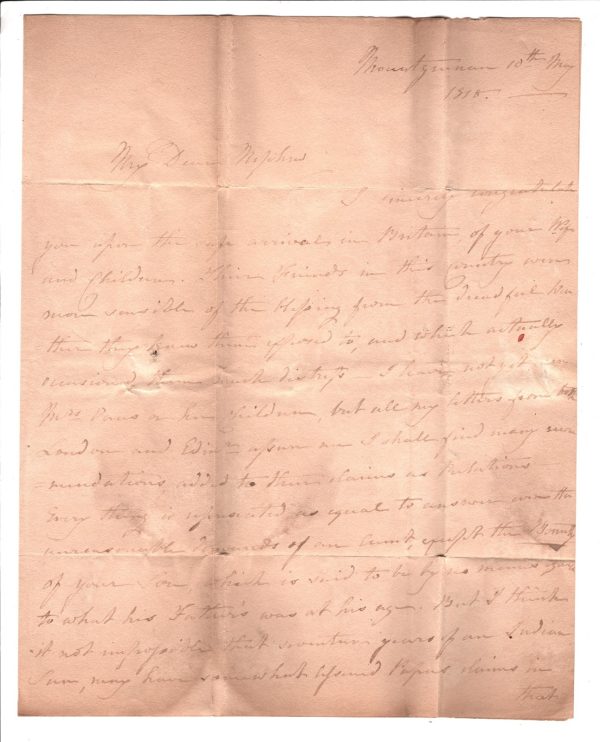 10th May
1818.
My Dear Nephew
I sincerely congratulate
you upon the safe arrival in Britain of your Wife
and Children. Their Friends in this Country were
more sensible of the blessing from the dreadful Wea
ther they knew them exposed to, and which actually
occasioned them much distress. I have not yet seen
Mrs or her Children, but all my letters from both
London and Edinr assure me I shall find many recom
=mendations added to their claims as Relations
Every thing is represented as equal to answer even the
unreasonable demands of an Aunt, except the Beauty
of your Son, which is said to be by no means equal
to what his Father's was at his age. But I think
it not impossible that seventeen years of an Indian
Sun, may have somewhat lessened Papas claims in
that